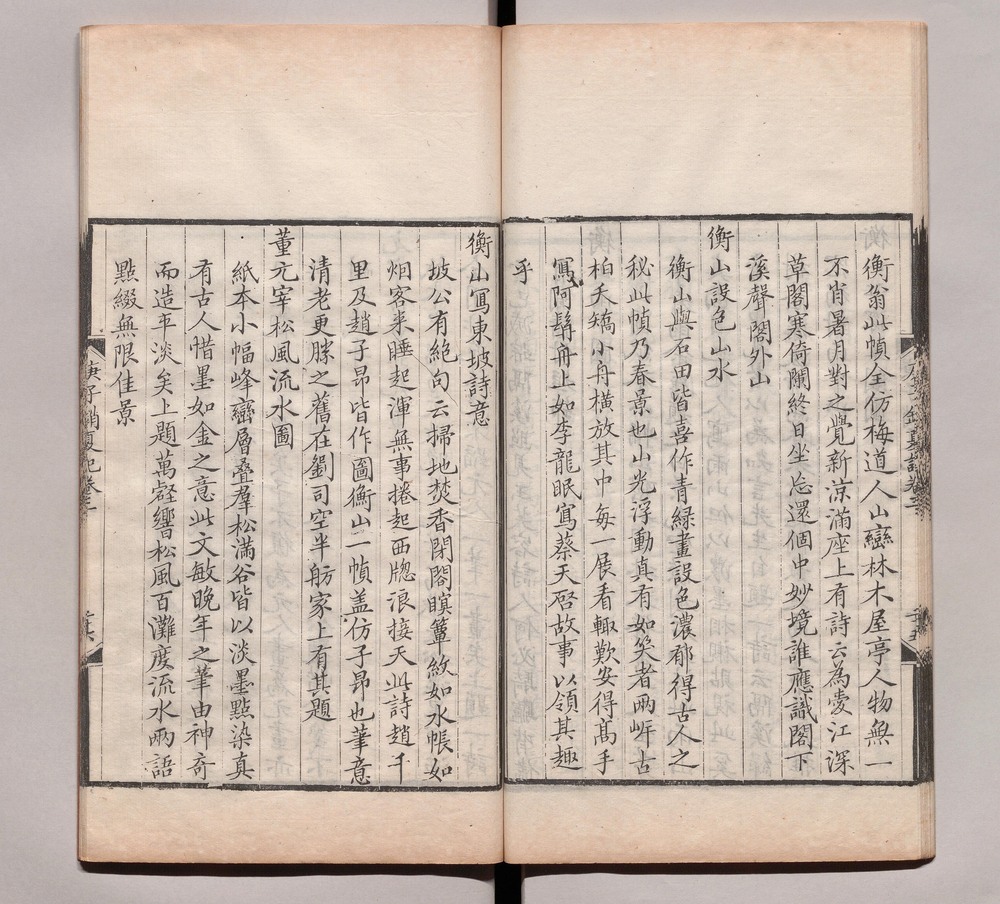 衡翁此幀全仿梅道人山巒林木屋亭人物無一
不肖暑月對之覺新涼滿座上有詩云為愛江深
草閣寒倚闌終日坐忘還個中妙境誰應識閣下
溪聲閣外山
衡山設色山水
衡山與石田皆喜作青緑畫設色濃郁得古人之
秘此幀乃春景也山光浮動真有如笑者兩岍古
柏夭矯小舟橫放其中每一展看輙歎安得髙手
寫阿髯舟上如李龍眠寫蔡天啓故事以領其趣
乎
衡山寫東坡詩意
坡公有絶句云掃地焚香閉閣瞑簟紋如水帳如
烟客来睡起渾無事捲起西牎浪接天此詩趙千
里及趙子昂皆作圖衡山一幀盖仿子昂也筆意
清老更勝之舊在錫司空半舫家上有其題
董元宰松風流水圖
紙本小幅峰巒層叠羣松滿谷皆以淡墨點染真
有古人惜墨如金之意此文敏晚年之筆由神奇
而造平淡矣上題萬壑響松風百灘度流水兩語
點綴無限佳景
庚子銷夏記卷三